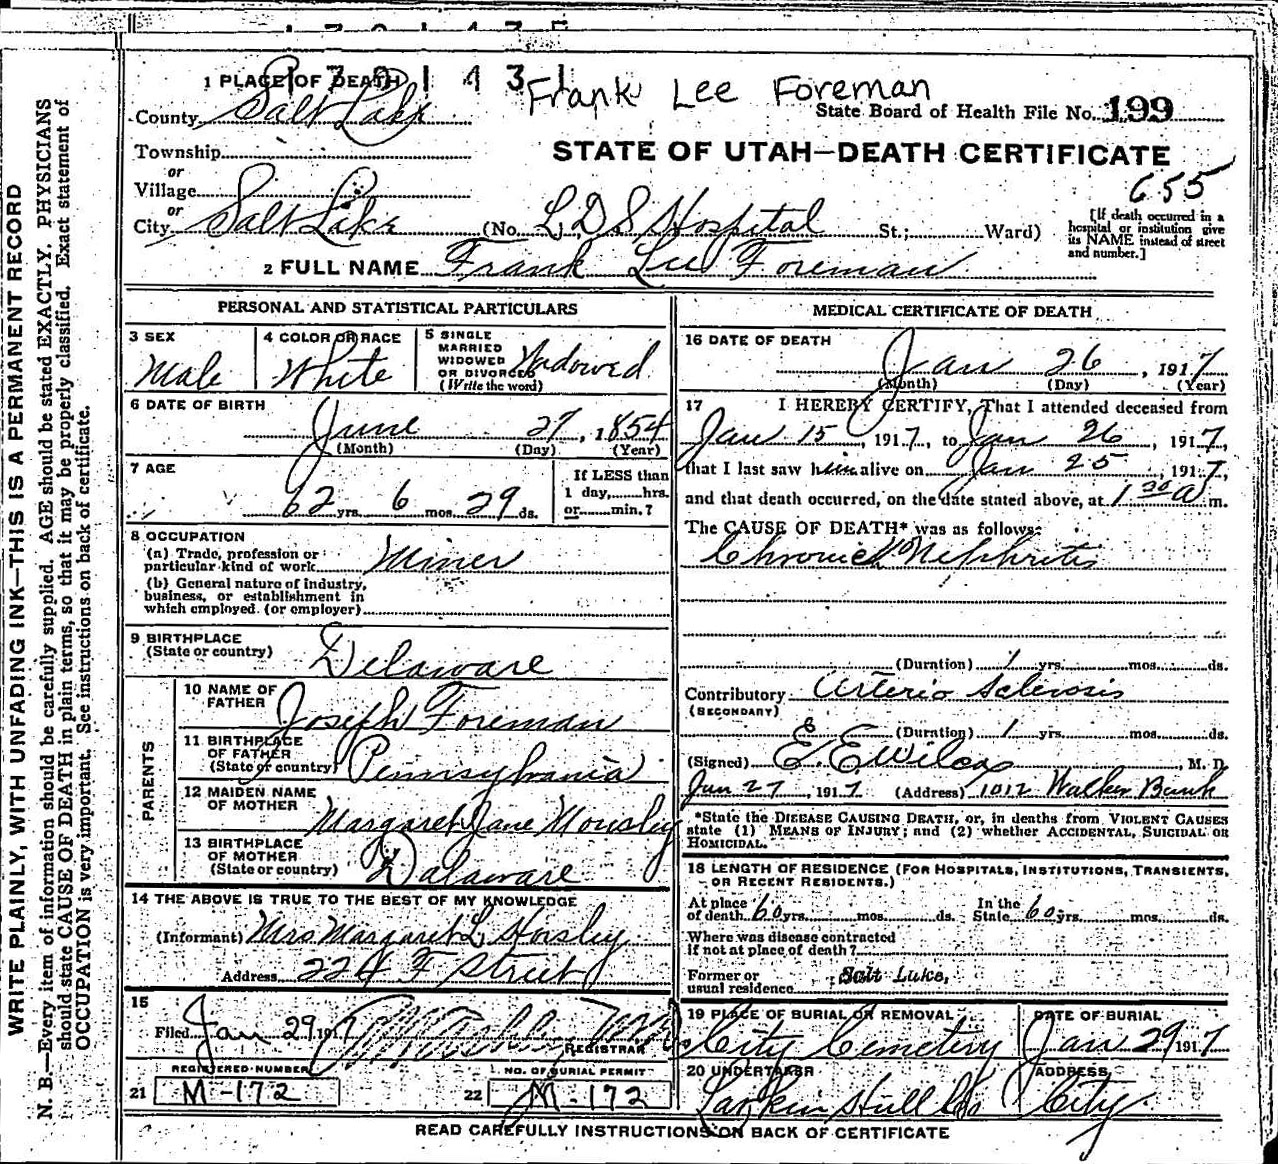 1 PLACE OF DEATH
Frank Lee Foreman
County Salt Lake
State Board of Health File No. 199
Township
STATE OF UTAH—DEATH CERTIFICATE
or
Village
655
or
City Salt Lake (No. L.D.S Hospital St.; Ward)
[If death occurred in a hospital or institution give its NAME instead of street and number.]
2 FULL NAME Frank Lee Foreman
PERSONAL AND STATISTICAL PARTICULARS
3 SEX
Male
4 COLOR OR RACE
White
5 SINGLE MARRIED WIDOWED OR DIVORCED
(Write the word)
Widowed
6 DATE OF BIRTH
June 27, 1854
(Month) (Day) (Year)
7 AGE
62 yrs. 6 mos. 29 ds.
If LESS than
1 day, hrs.
or min.?
8 OCCUPATION
(a) Trade, profession or
particular kind of work Miner
(b) General nature of industry,
business, or establishment in
which employed (or employer)
9 BIRTHPLACE
(State or country) Delaware
PARENTS
10 NAME OF
FATHER Joseph Foreman
11 BIRTHPLACE
OF FATHER
(State or country) Pennsylvania
12 MAIDEN NAME
OF MOTHER
Margaret Jane Mousley
13 BIRTHPLACE
OF MOTHER
(State or country) Dalaware
14 THE ABOVE IS TRUE TO THE BEST OF MY KNOWLEDGE
(Informant) Mrs Margaret L. Horsley
Address 224 F Street
15
Filed Jan 29 1917
REGISTRAR
REGISTERED NUMBER
21 M-172
NO. OF BURIAL PERMIT
22 M-172
MEDICAL CERTIFICATE OF DEATH
16 DATE OF DEATH
Jan 26, 1917
(Month) (Day) (Year)
17 I HEREBY CERTIFY, That I attended deceased from
Jan 15, 1917, to Jan 26, 1917,
that I last saw him alive on Jan 25, 1917,
and that death occurred, on the date stated above, at 1 30 a m.
The CAUSE OF DEATH* was as follows:
Chronick Nephritis
(Duration) 1 yrs. mos. ds.
Contributory Arterio Sclerosis
(SECONDARY)
(Duration) 1 yrs. mos. ds.
(Signed) E. E. Wilcox, M. D.
Jan 27, 1917. (Address) 1012 Walker Bank
*State the DISEASE CAUSING DEATH, or, in deaths from VIOLENT CAUSES
state (1) MEANS OF INJURY; and (2) whether ACCIDENTAL, SUICIDAL OR
HOMICIDAL.
18 LENGTH OF RESIDENCE (FOR HOSPITALS, INSTITUTIONS, TRANSIENTS,
OR RECENT RESIDENTS.)
At place
of death 60 yrs. mos. ds.
In the
State 60 yrs. mos. ds.
Where was disease contracted
If not at place of death?
Former or
usual residence Salt Lake,
19 PLACE OF BURIAL OR REMOVAL
City Cemetery
DATE OF BURIAL
Jan 29 1917
20 UNDERTAKER
Larkin Hull Co
ADDRESS
City
READ CAREFULLY INSTRUCTIONS ON BACK OF CERTIFICATE
WRITE PLAINLY, WITH UNFADING INK—THIS IS A PERMANENT RECORD
N. B.—Every item of information should be carefully supplied. AGE should be stated EXACTLY. PHYSICIANS
should state CAUSE OF DEATH in plain terms, so that it may be properly classified. Exact statement of
OCCUPATION is very important. See instructions on back of certificate.